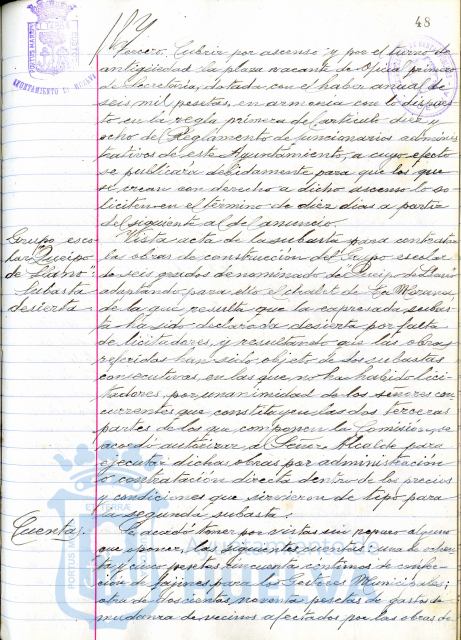 48
AYUNTAMIENTO DE HUELVA
Tercero. Cubrir por ascenso y por el turno de
antigüedad la plaza vacante de Oficial primero
de Secretaría, dotada con el haber anual de
seis mil pesetas, en armonía con lo dispues-
to en la regla primera del artículo diez y
ocho del Reglamento de funcionarios adminis-
trativos de este Ayuntamiento, a cuyo efecto
se publicará debidamente para que los que
se crean con derecho a dicho ascenso lo so-
liciten en el término de diez días a partir
del siguiente al del anuncio.
Grupo esco-
lar "Queipo
de Llano".
Subasta
desierta
Vista acta de la subasta para contratar
las obras de construcción del Grupo escolar
de seis grados denominado de Queipo de Llano
adaptando para ello el chalet de la Morana,
de la que resulta que la expresada subas-
ta ha sido declarada desierta por falta
de licitadores, y resultando que las obras
referidas han sido objeto de dos subastas
consecutivas, en las que no ha habido lici-
tadores, por unanimidad de los señores con-
currentes que constituyen las dos terceras
partes de los que componen la Comisión, se
acordó autorizar al Señor Alcalde para
ejecutar dichas obras por administración
o contratación directa dentro de los precios
y condiciones que sirvieron de tipo para
la segunda subasta.
Cuentas.
Se acordó tener por vistas sin reparo alguno
que oponer, las siguientes cuentas: una de ochen-
ta y cinco pesetas cincuenta céntimos de confec-
ción de fajines para los Gestores Municipales;
otra de doscientas noventa pesetas de gastos de
mudanza de vecinos afectados por las obras de